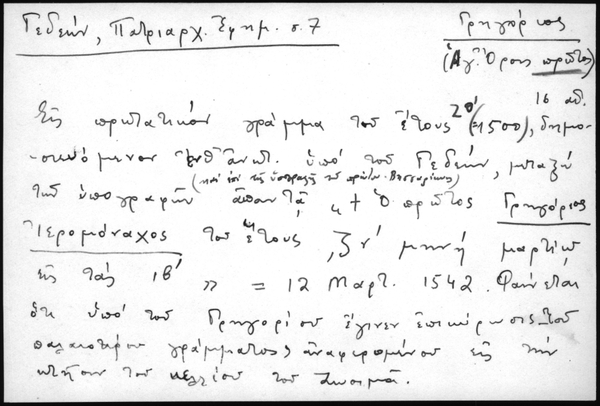 Γεδεών, Πατριαρχ. Ἐφημ. σ. 7
Γρηγόριος
(Ἁγ. Ὄρους πρῶτος)
16 αἰ.
Εἰς πρωτατικόν γράμμα τοῦ ἔτους (=1500), δημο-
-σιευόμενον ἔνθ' ἀνωτ. ὑπό τοῦ Γεδεών, μεταξύ
τῶν ὑπογραφῶν (καί ἐπί τῆς ὑπογραφῆς τοῦ πρώτου Βησσαρίωνος) ἀπαντᾶ ἡ + Ὁ πρῶτος Γρηγόριος
Ἱερομόναχος τοῦ ἔτους ,ζν' μηνί μαρτίῳ
εἰς τάς ιβ' " = 12 Μαρτ. 1542. Φαίνεται
ὅτι ὑπό τοῦ Γρηγορίου ἔγινεν ἐπικύρωσις τοῦ
παλαιοτέρου γράμματος ἀναφερομένου εἰς τήν
κτῆσιν τοῦ κελλίου τοῦ Ζωσιμᾶ.